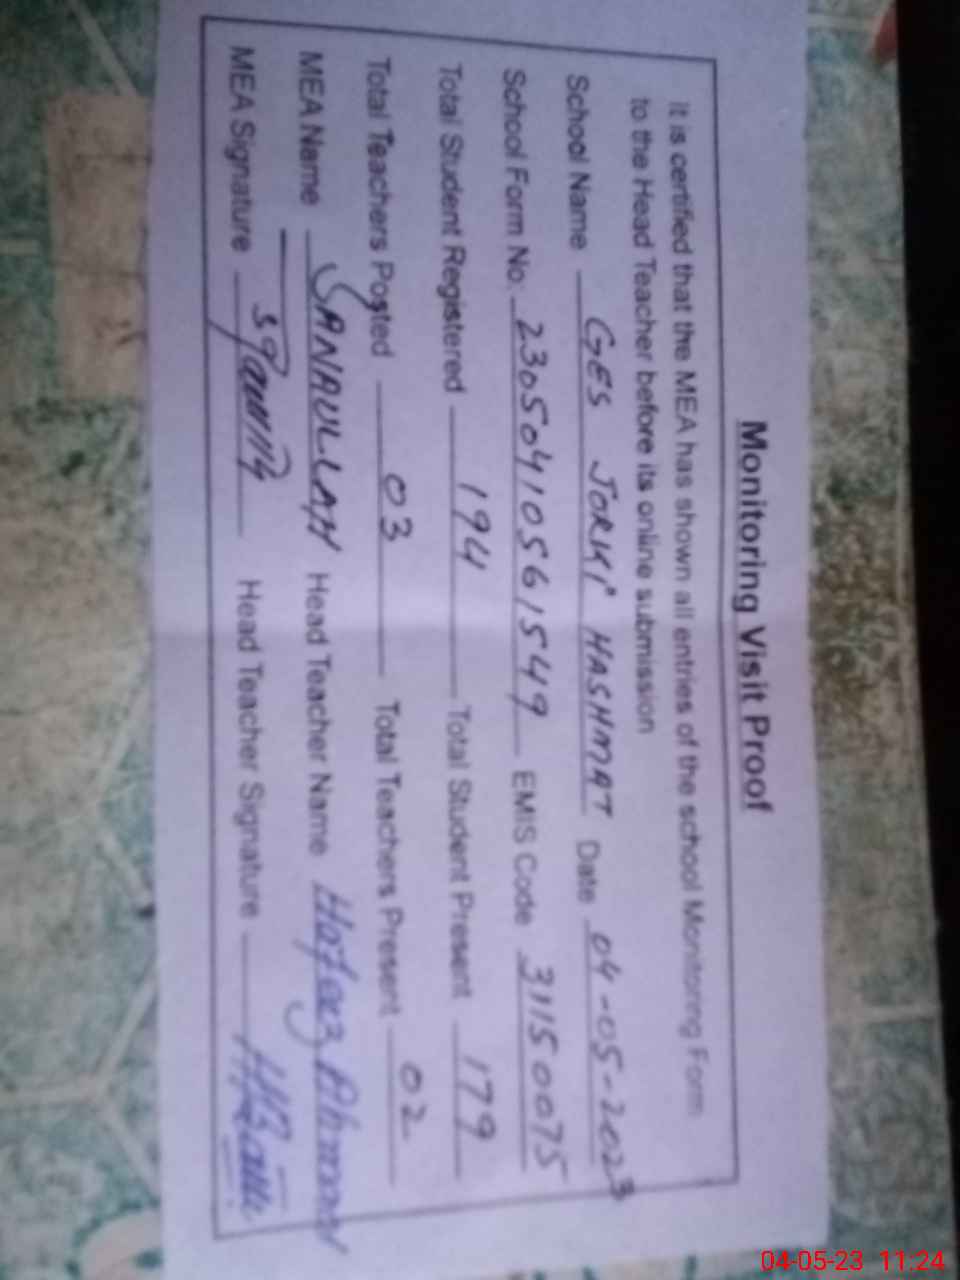 Monitoring Visit Proof
It is certified that the MEA has shown all entries of the school Monitoring Form
to the Head Teacher before its online submission
School Name GES JORKI HASHMAT Date 04-05-2023
School Form No. 2305041056 1549 EMIS Code 31150075
Total Student Registered 194 Total Student Present 179
Total Teachers Posted 03 Total Teachers Present 02
MEA Name SANAULLAH Head Teacher Name Hafeez Ahmad
MEA Signature Head Teacher Signature
04-05-23 11:24